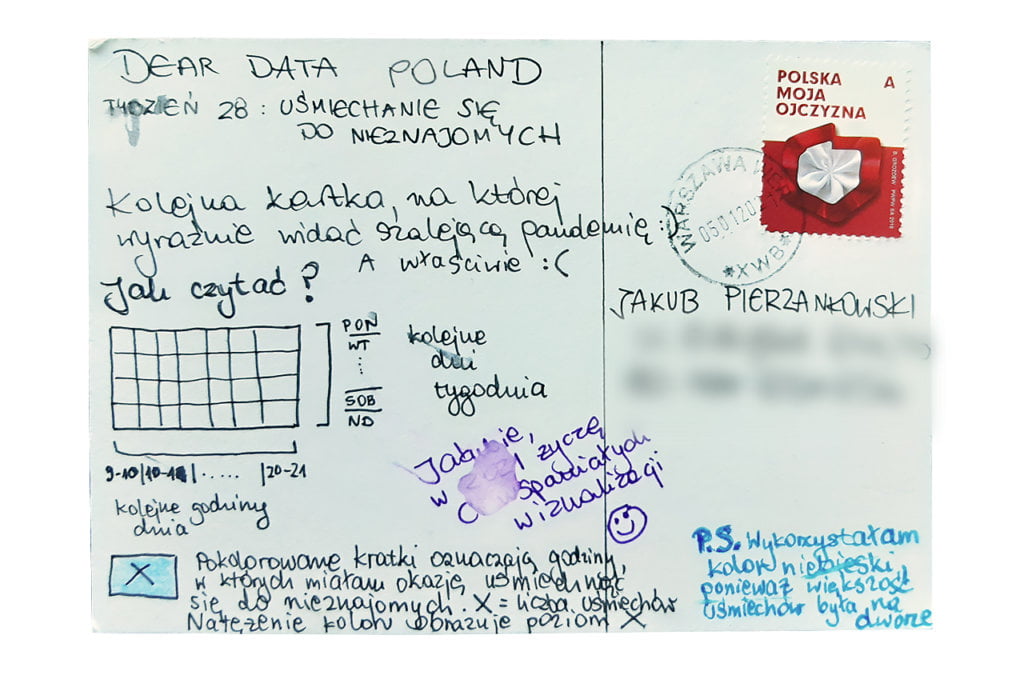 DEAR DATA POLAND
TYDZIEŃ 28 : UŚMIECHANIE SIĘ
DO NIEZNAJOMYCH
Kolejna kartka, na której
wyraźnie widać szalejącą pandemię :)
A właściwie :(
Jak czytać?
PON
WT
⋮
SOB
ND
kolejne
dni
tygodnia
9-10|10-11|.....|20-21
kolejne godziny
dnia
Jakubie,
w 2021 życzę
Ci wspaniałych
wizualizacji
X
Pokolorowane kratki oznaczają godziny,
w których miałam okazję uśmiechnąć
się do nieznajomych. X = liczba uśmiechów
Natężenie koloru obrazuje poziom X
POLSKA A
MOJA
OJCZYZNA
PWPW SA 2018
WARSZAWA
*XWB*
JAKUB PIERZANKOWSKI
P.S. Wykorzystałam
kolor niebieski
ponieważ większość
uśmiechów była na
dworze